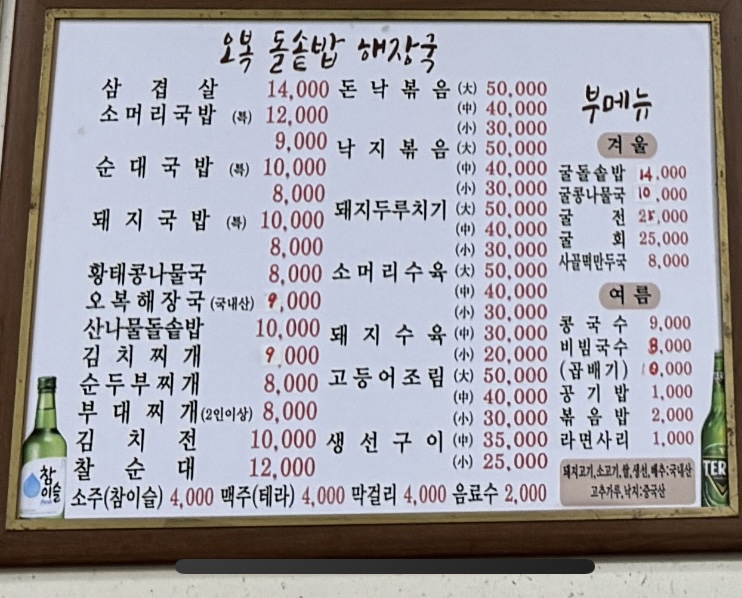 오복 돌솥밥 해장국
삼겹살 14,000
소머리국밥 (특) 12,000
9,000
순대국밥 (특) 10,000
8,000
돼지국밥 (특) 10,000
8,000
황태콩나물국 8,000
오복해장국(국내산) 9,000
산나물돌솥밥 10,000
김치찌개 9,000
순두부찌개 8,000
부대찌개(2인이상) 8,000
김치전 10,000
찰순대 12,000
돈낙볶음 (大) 50,000
(中) 40,000
(小) 30,000
낙지볶음 (大) 50,000
(中) 40,000
(小) 30,000
돼지두루치기 (大) 50,000
(中) 40,000
(小) 30,000
소머리수육 (大) 50,000
(中) 40,000
(小) 30,000
돼지수육 (中) 30,000
(小) 20,000
고등어조림 (大) 50,000
(中) 40,000
(小) 30,000
생선구이 (中) 35,000
(小) 25,000
부메뉴
겨울
굴돌솥밥 14,000
굴콩나물국 10,000
굴전
굴회 25,000
사골떡만두국 8,000
여름
콩국수 9,000
비빔국수 8,000
(곱배기)
공기밥 1,000
볶음밥 2,000
라면사리 1,000
돼지고기,소고기,쌀,생선,배추:국내산
고추가루,낙지:중국산
소주(참이슬) 4,000 맥주(테라) 4,000 막걸리 4,000 음료수 2,000
참이슬
TER